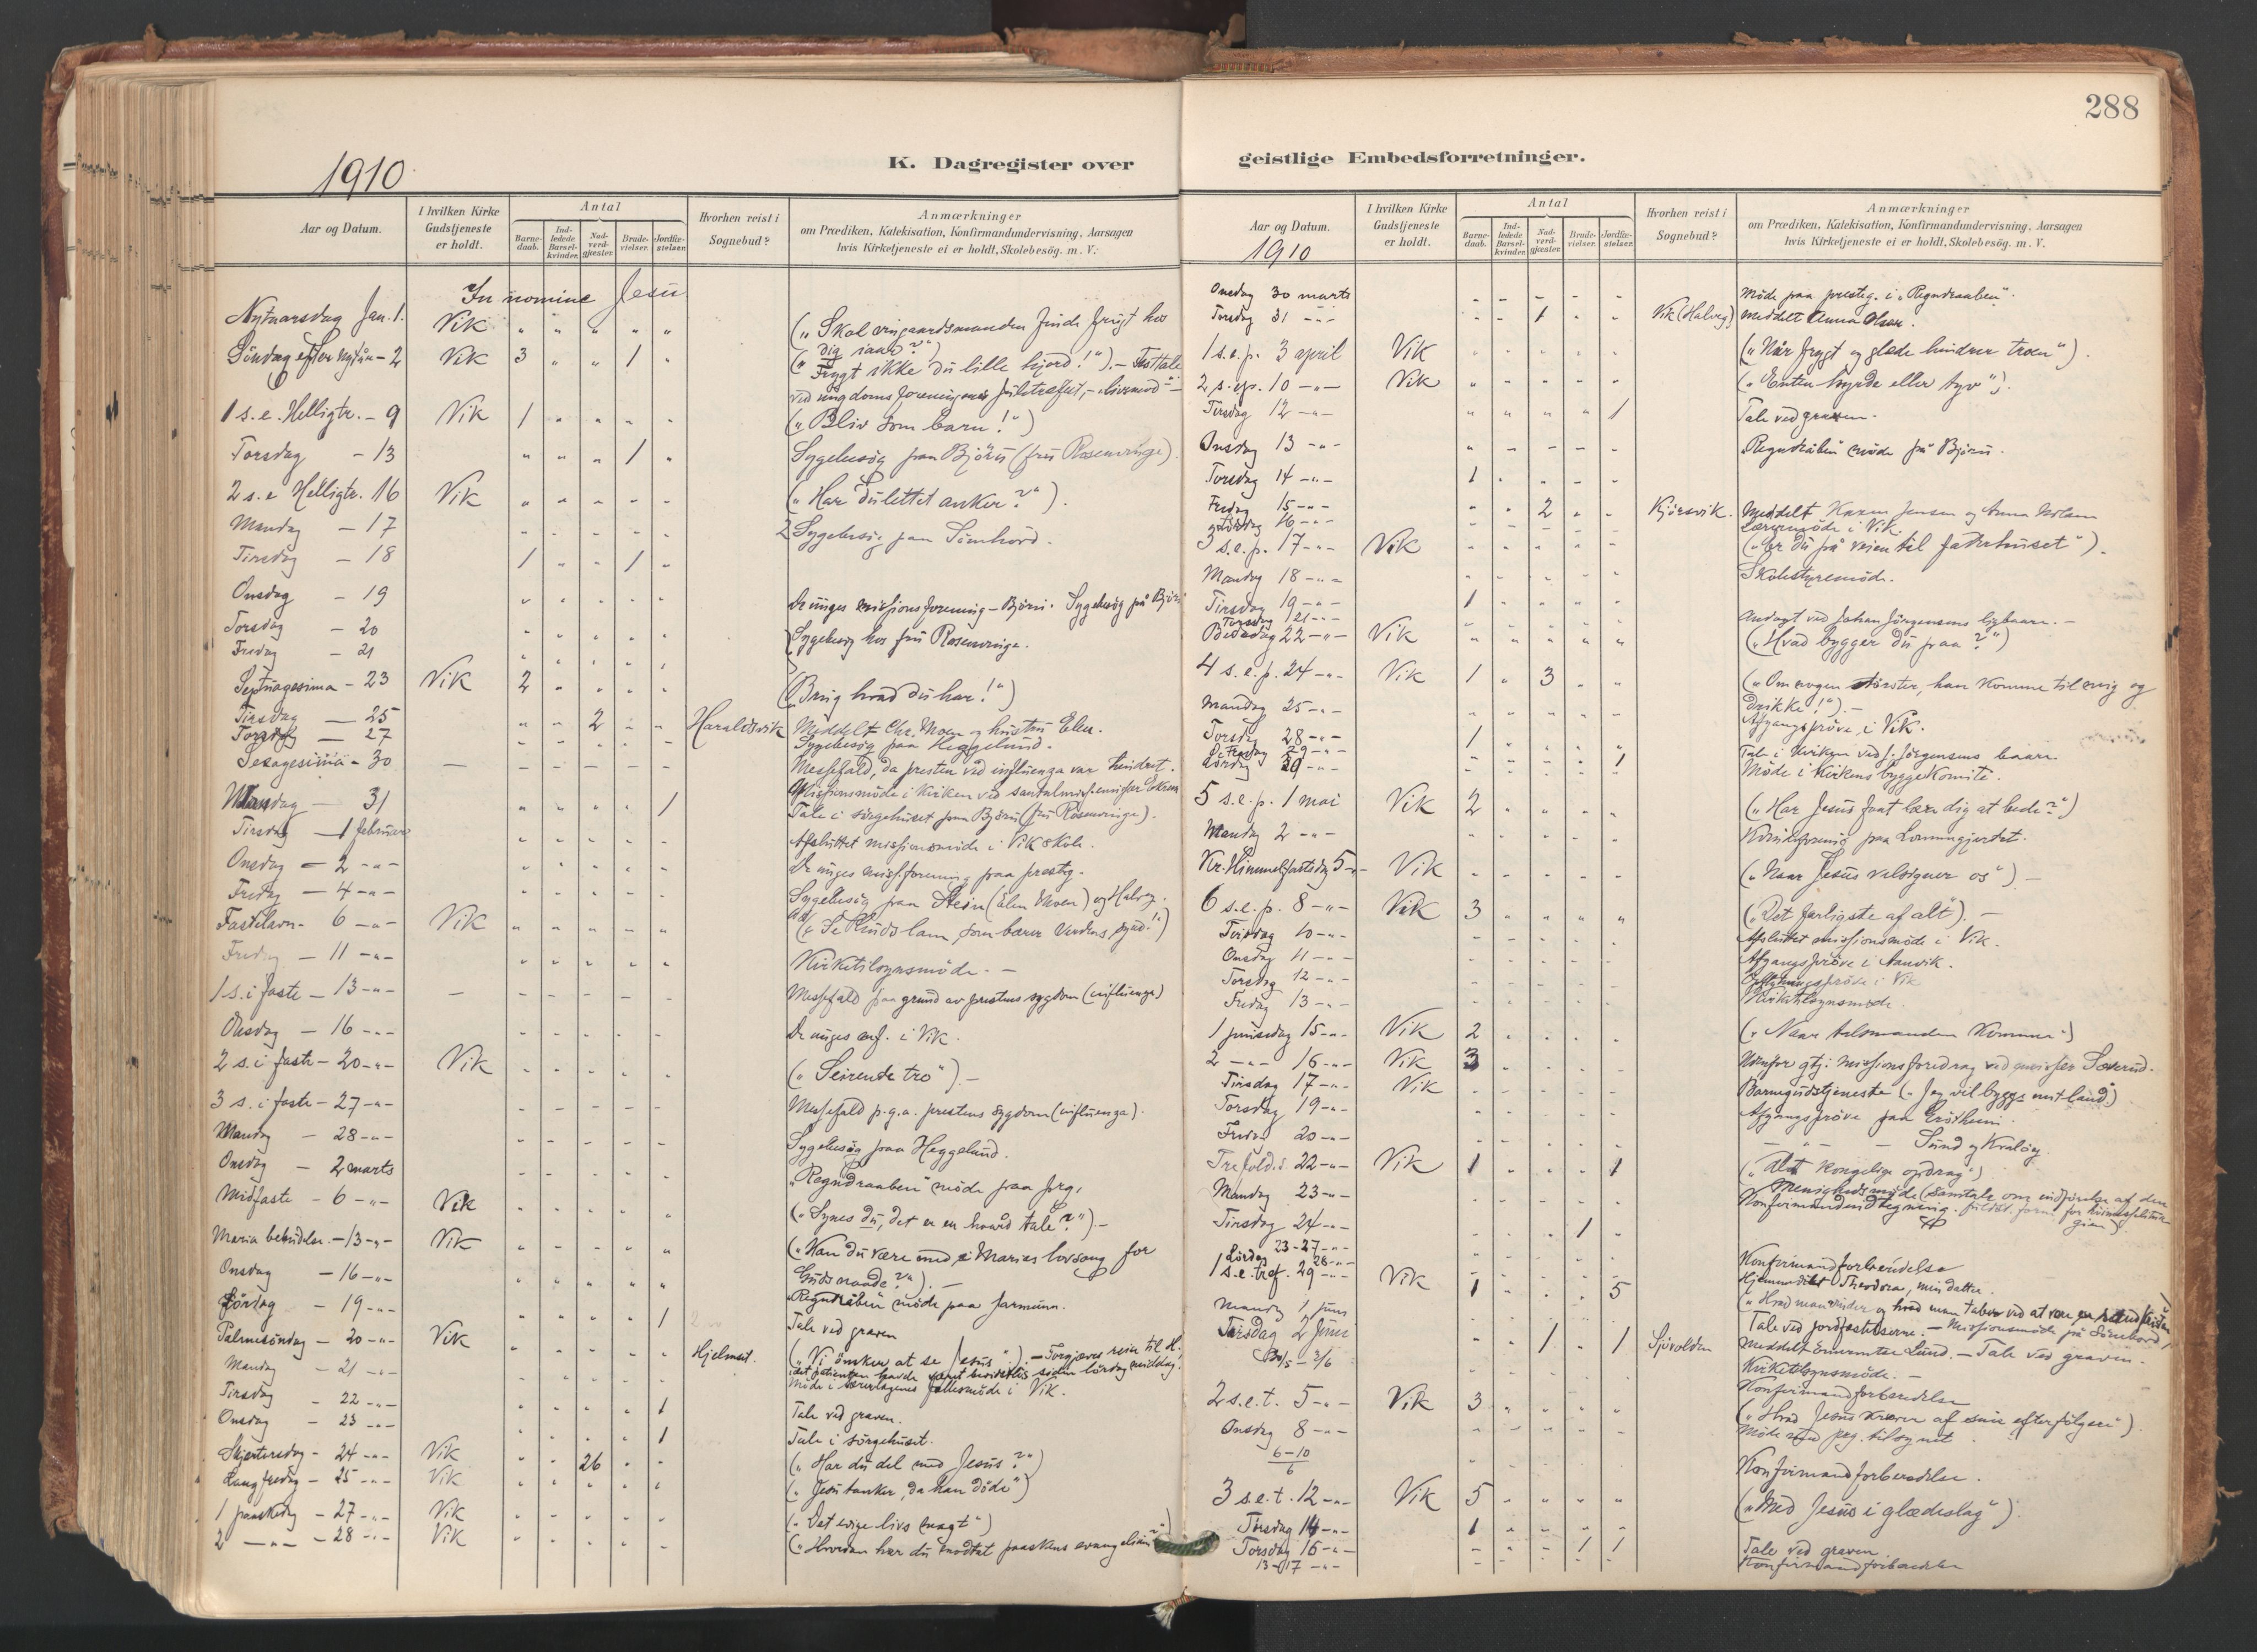 288
1910
K. Dagregister over
geistlige Embedsforretninger.
Aar og Datum.
I hvilken Kirke Gudstjeneste er holdt.
Antal
Barne-daab.
Ind-ledede Barsel-kvinder.
Nad-verd-gjæster.
Brude-vielser.
Jordfæ-stelser.
Hvorhen reist i Sognebud?
Anmærkninger
om Prædiken, Katekisation, Konfirmandundervisning, Aarsagen
hvis Kirketjeneste ei er holdt, Skolebesög. m. V.
In nomine Jesu
Nytaarsdag Jan. 1. Vik " " " " " („Skal vingaardsmanden finde frugt hos
dig iaar?“)
Söndag efter nytår - 2 Vik 3 " " 1 " („Frygt ikke du lille hjord!“). - Festtale
ved ungdomsforeningens juletræfest,
1 s. e. Helligtr. - 9 Vik 1 " " " " („Bliv som barn!“)
Torsdag - 13 " " " 1 " Sygebesög paa Björn (fru Rosenvinge).
2 s. e Helligtr. 16 Vik " " " " " („Har du lettet anker?“).
Mandag - 17 " " " " " 2 Sygebesög paa
Tirsdag - 18 1 " " 1 "
Onsdag - 19 " " " " " De unges missionsforening - Björn. Sygebesög på Björn
Torsdag - 20 " " " " " Sygebesög hos fru Rosenvinge.
Fredag - 21 " " " " "
Septuagesima - 23 Vik 2 " " " " („Brug hvad du har!“)
Tirsdag - 25 " " 2 " " Haraldsvik Meddelt Chr. Moen og hustru Elen.
Torsdag - 27 " " " " " Sygebesög paa Heggelund.
Sexagesima - 30 — - - - - - Messefald, da presten ved influenza var hindret.
Mandag - 31 " " " " 1 Missionsmöde i Kirken ved
Tale i sörgehuset paa Björn (fru Rosenvinge).
Tirsdag - 1 februar " " " " " Afsluttet missionsmöde i Vik skole.
Onsdag - 2 -"- " " " " " De unges miss.forening paa prestg.
Fredag - 4 -"- " " " " " Sygebesög paa Stein (Elen Moen) og Halveg.
Fastelavn - 6 -"- Vik " " " " " („Se Guds lam, som bærer verdens synd!“)
Fredag - 11 -"- " " " " " Kirketilsynsmöde. -
1 s. i faste - 13 -"- — - - - - - Messefald paa grund av prestens sygdom (influenza)
Onsdag - 16 -"- - - - - - De unges i Vik.
2 s. i faste - 20 -"- Vik " " " " " („Seirende tro“). -
3 s. i faste - 27 -"- - - - - - Messefald p.g.a. prestens sygdom (influenza).
Mandag - 28 -"- - - - - - Sygebesög paa Heggelund.
Onsdag - 2 marts - - - - - „Regndraaben“ möde paa prg.
Midfaste - 6 -"- Vik " " " " " („Synes du, det er en haard tale?“) -
Maria bebudelse - 13 -"- Vik " " " " " („Kan du være med i Marias lovsang for
Guds naade?“). -
Onsdag - 16 -"- " " " " " „Regndråben“ möde paa
Lördag - 19 -"- " " " " 1 Tale ved graven
Palmesöndag - 20 -"- Vik " " " " " Hjelmset. („Vi önsker at se Jesus“). - Forgjæves reise til H.
idet patienten havde været bevidstlös siden lördag middag.
Mandag - 21 -"- " " " " " Möde i lærerlagenes fællesmöde i Vik.
Tirsdag - 22 -"- " " " " 1 Tale ved graven.
Onsdag - 23 -"- " " " " 1 Tale i sörgehuset.
Skjærtorsdag - 24 -"- Vik " " 26 " " („Har du del med Jesus?“)
Langfredag - 25 -"- Vik " " " " " („Jesu tanker, da han döde“)
1 paaskedag - 27 -"- Vik " " " " " („Det evige livs magt“)
2 -"- - 28 -"- Vik " " " " " („Hvordan har du modtat paaskens evangelium?“)
Aar og Datum.
1910
I hvilken Kirke Gudstjeneste er holdt.
Antal
Barne-daab.
Ind-ledede Barsel-kvinder.
Nad-verd-gjæster.
Brude-vielser.
Jordfæ-stelser.
Hvorhen reist i Sognebud?
Anmærkninger
om Prædiken, Katekisation, Konfirmandundervisning, Aarsagen
hvis Kirketjeneste ei er holdt, Skolebesög. m. V.
Onsdag 30 marts - - - - - Möde paa presteg. i „Regndraaben“.
Torsdag 31 -"- - - 1 - - Vik (Halveg) meddelt Anna Olsen.
1 s. e. p. 3 april Vik " " " " " („Når frygt og glæde hindrer troen“).
2 s. e. p. 10 -"- Vik " " " " " („Enten hyrde eller tyv“).
Tirsdag 12 -"- " " " " 1 Tale ved graven.
Onsdag 13 -"- " - - - - „Regndråben“ möde på Björn.
Torsdag 14 -"- 1 " " " "
Fredag 15 -"- " " 2 " " Kjörsvik. Meddelt Karen Jensen og Anna
Lördag 16 -"- - - - - - Lærermöde i Vik.
3 s. e. p. 17 -"- Vik " " " " " („Er du på veien til faderhuset“).
Mandag 18 -"- " " " " " Skolestyremöde.
Tirsdag 19 -"- 1 " " " "
Torsdag 21 -"- " " " " " Andagt ved Johan Jörgensens ligbaare. -
Bededag 22 -"- Vik " " " " " („Hvad bygger du paa?“)
4 s. e. p. 24 -"- Vik 1 " 3 " " („Om nogen törster, han komme til mig og
drikke!“). -
Mandag 25 -"- - - - - - Afgangspröve i Vik.
Torsdag 28 -"- 1 " " " "
Fredag 29 -"- " " " " 1 Tale i kirken ved J. Jörgensens baare
Lördag 30 -"- - - - - - Möde i Kirkens byggekomite.
5 s. e. p. 1 mai Vik 2 " " " " („Har Jesus faat lære dig at bede?“)
Mandag 2 -"- " " " " " Kvindeforening paa
Kr. Himmelfartsdag 5 -"- Vik " " " " " („Naar Jesus velsigner os“) -
6 s. e. p. 8 -"- Vik 3 " " " " („Det farligste af alt“). -
Tirsdag 10 -"- - - - - - Afsluttet missionsmöde i Vik.
Onsdag 11 -"- - - - - - Afgangspröve i Aunvik.
Torsdag 12 -"- - - - - - i Vik
Fredag 13 -"- - - - - - Kirketilsynsmöde.
1 pinsedag 15 -"- Vik 2 " " " " („Naar talsmanden kommer“)
2 -"- 16 -"- Vik 3 " " " " Udenfor gtj: missionsforedrag ved
Tirsdag 17 -"- Vik " " " " " Barnegudstjeneste („Jeg vil bygge mit land“)
Torsdag 19 -"- " " " " " Afgangspröve paa
Fredag 20 -"- - - - - - — " — Sund og Kvalöy.
Trefold.s. 22 -"- Vik 1 " " " 1 („Det kongelige opdrag“)
Mandag 23 -"- " " " " " Menighedsmöde (samtale om indförelse af den
Konfirmandindtegning.
Tirsdag 24 -"- " " " 1 "
23-27 -"- - - - - - Konfirmandforberedelse
Lördag 28 -"- - - - - - Hjemmedöbt Theodora, min datter.
1 s. e. tref. 29 -"- Vik 1 " " " 5
Mandag 1 juni Tale ved jordfæstelserne. - Missionsmöde på
Torsdag 2 Juni " " 1 " 1 Sjövolden Meddelt Lund. - Tale ved graven.
30/5 - 3/6 Kirketilsynsmöde. -
Konfirmandforberedelse
2 s. e. t. 5 -"- Vik 3 " " " " („Hvad Jesus kræver af sine efterfölgere“)
Onsdag 8 -"- - - - - - Möde med tilsynet
6-10/6 - - - - - Konfirmandforberedelse.
3 s. e. t. 12 -"- Vik 5 " " " " („Med Jesus i glædeslag“)
Tirsdag 14 -"- 1 " " " "
Torsdag 16 -"- " " " 1 1 Tale ved graven
13-17 -"- - - - - - Konfirmandforberedelse